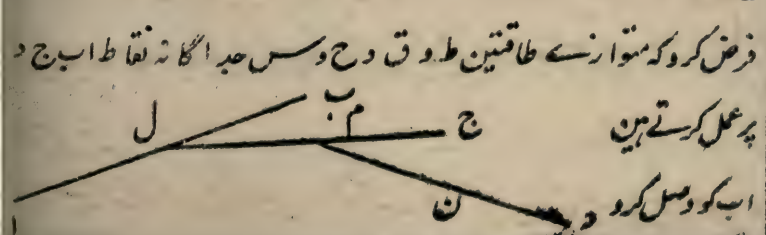 فرض کرو کہ متوازی طاقتین ط و ق و ح و س جدا گانہ نقاط ا ب ج د
پر عمل کرتے ہین
اب کو وصل کرو
ل
ب
م
ج
ن
د
ا